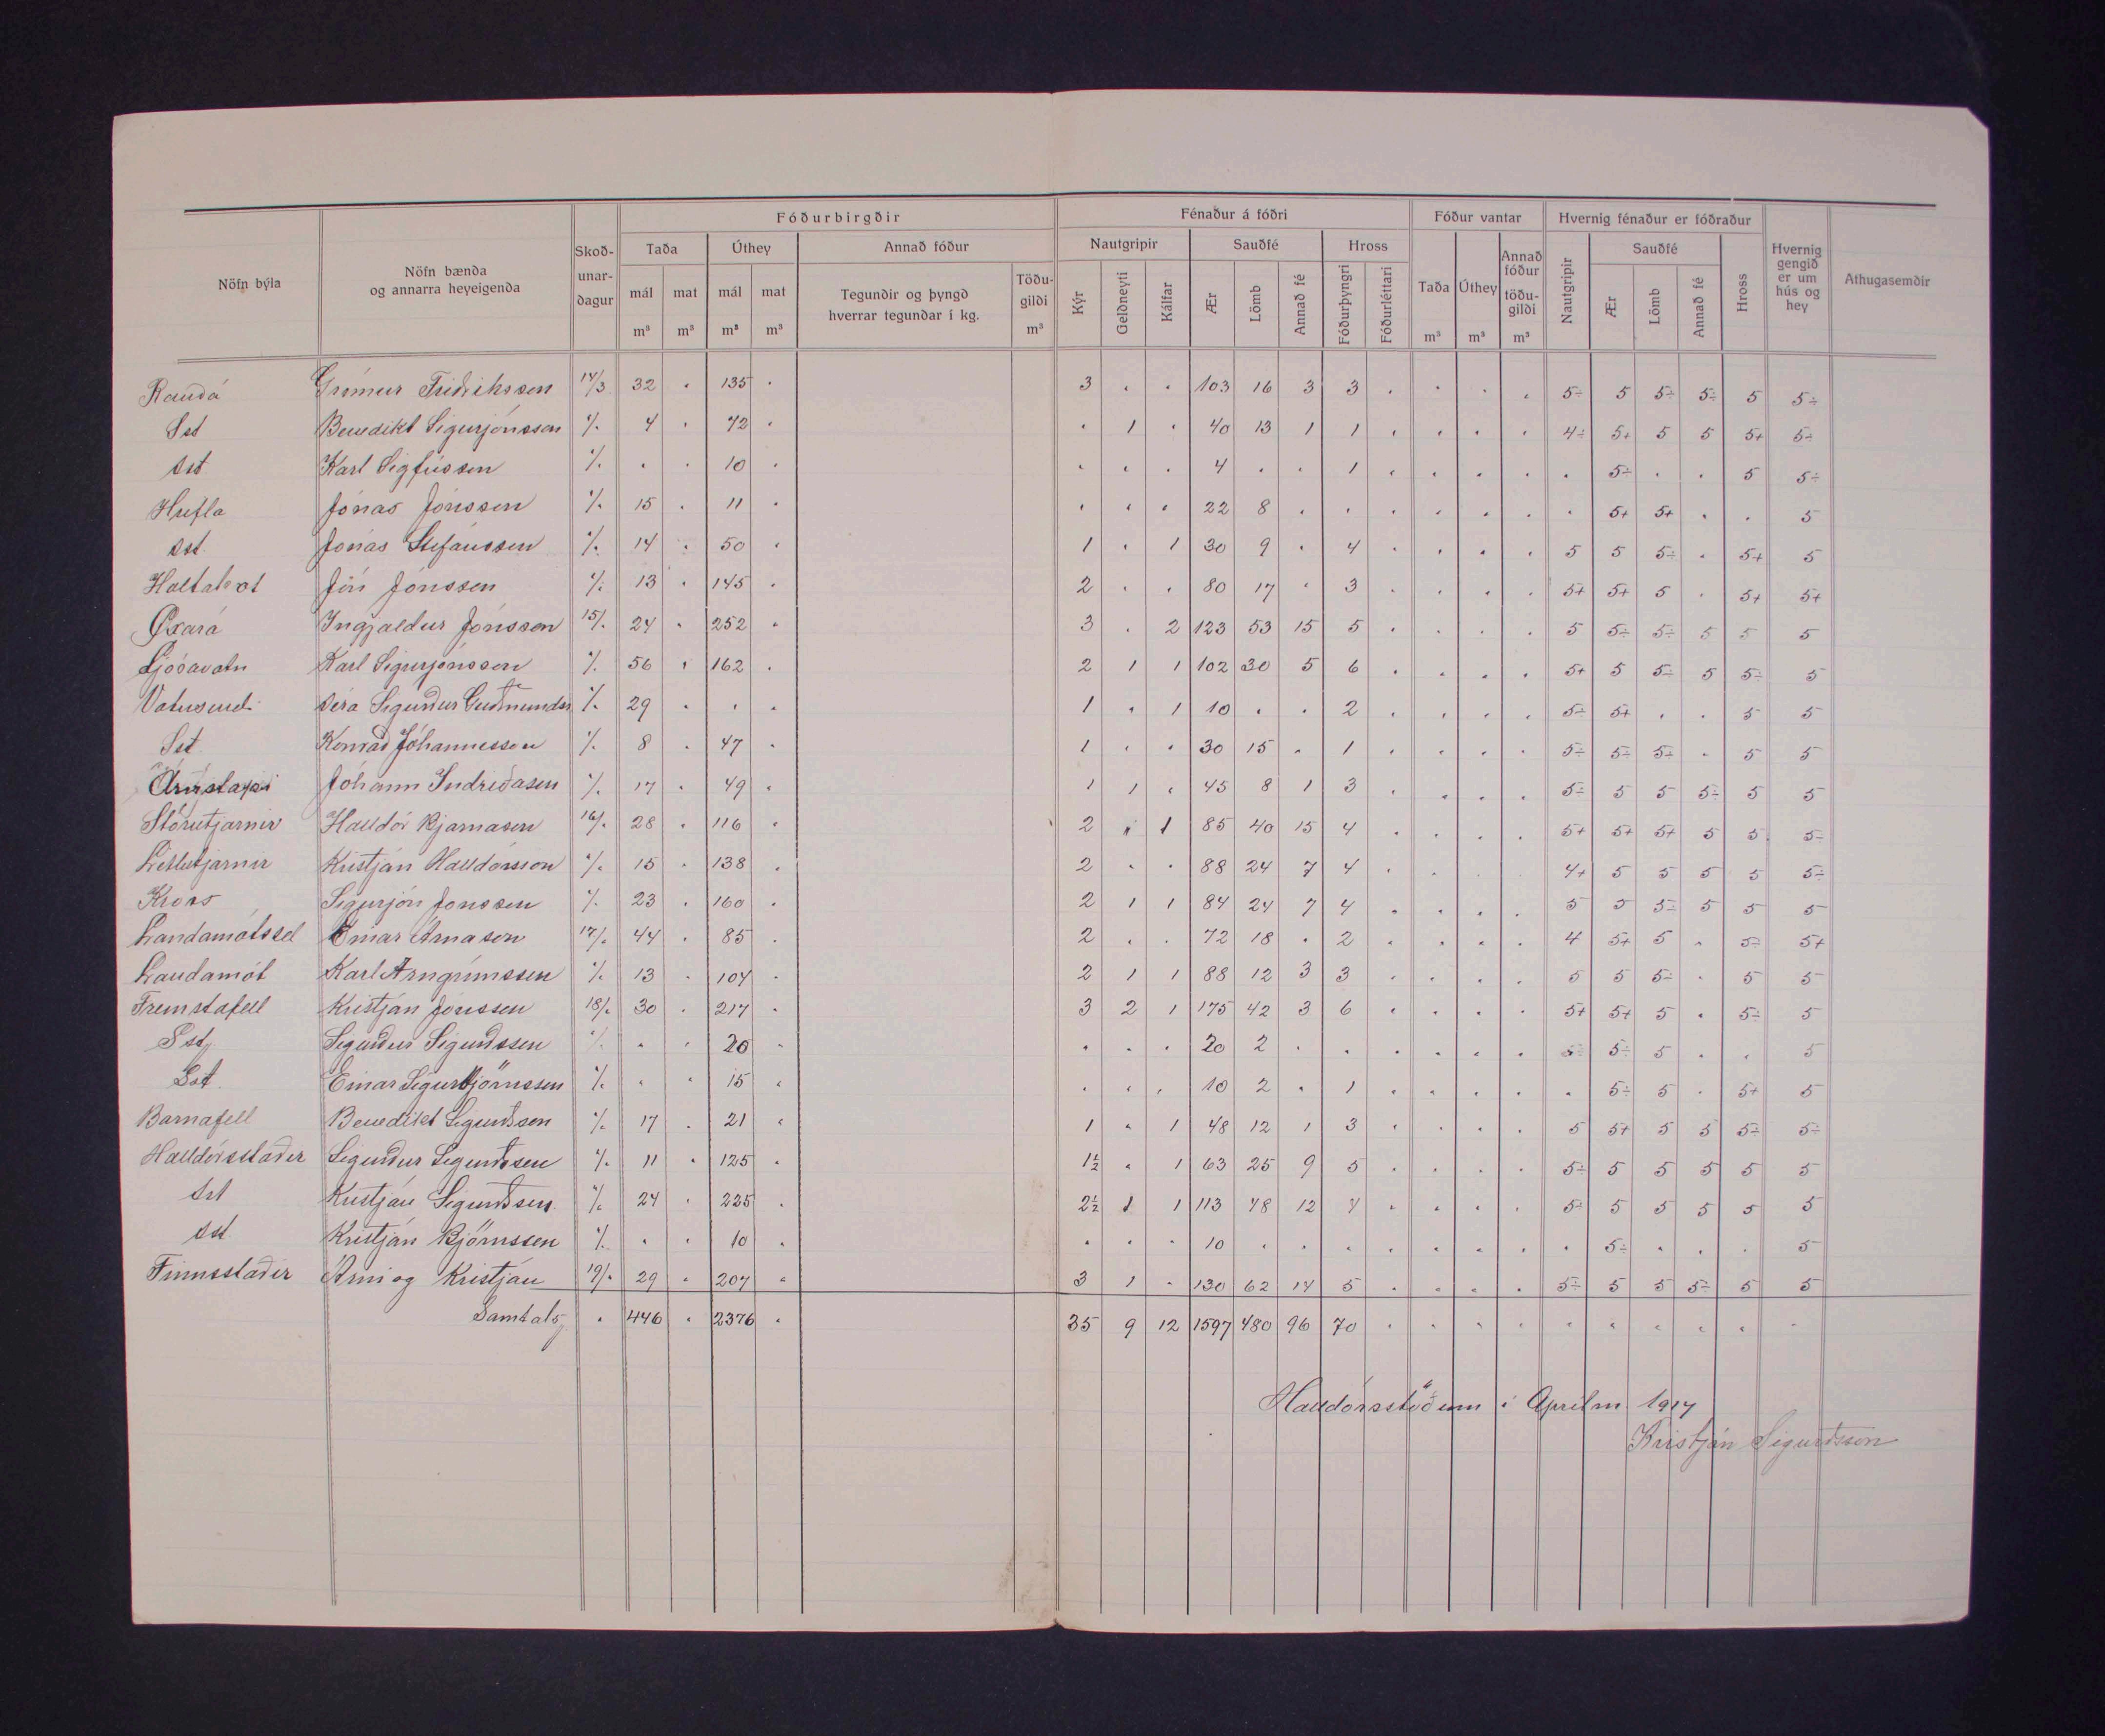 Fóðurbirgðir Fénaður á fóðri Fóður vantar Hvernig fénaður er fóðraður
Nöfn býla Nöfn bænda og annarra heyeigenda Skoðunardagur Taða Úthey Annað fóður Nautgripir Sauðfé Hross Taða Úthey Annað fóður töðugildi Nautgripir Sauðfé Hross Hvernig gengið er um hús og hey Athugasemdir
mál mat mál mat Tegundir og þyngd hverrar tegundar í kg. Töðugildi Kýr Geldneyti Kálfar Ær Lömb Annað fé Fóðurþyngri Fóðurléttari Ær Lömb Annað fé
m³ m³ m³ m³ m³ m³ m³ m³
Rauðá Grímur Friðriksson 14/3 32 " 135 " 3 " " 103 16 3 3 " " " " 5÷ 5 5÷ 5÷ 5 5÷
Sst Benedikt Sigurjónsson "/" 4 " 72 " " 1 " 40 13 1 1 " " " " 4÷ 5+ 5 5 5+ 5÷
Sst Karl Sigfússon "/" " " 10 " " " " 4 " " 1 " " " " " 5÷ " " 5 5÷
Hrifla Jónas Jónsson "/" 15 " 11 " " " " 22 8 " " " " " " " 5+ 5+ " " 5
Sst Jónas Stefánsson "/" 14 " 50 " 1 " 1 30 9 " 4 " " " " 5 5 5÷ " 5+ 5
Holtakot Jón Jónsson "/" 13 " 145 " 2 " " 80 17 " 3 " " " " 5+ 5+ 5 " 5+ 5+
Öxará Ingjaldur Jónsson 15/" 24 " 252 " 3 " 2 123 53 15 5 " " " " 5 5÷ 5÷ 5 5 5
Ljósavatn Karl Sigurjónsson "/" 56 " 162 " 2 1 1 102 30 5 6 " " " " 5+ 5 5÷ 5 5÷ 5
Vatnsendi séra Sigurður Guðmundss "/" 29 " " " 1 " 1 10 " " 2 " " " " 5÷ 5+ " " 5 5
Sst Konráð Jóhannesson "/" 8 " 47 " 1 " " 30 15 " 1 " " " " 5÷ 5÷ 5÷ " 5 5
Jóhann Indriðason "/" 17 " 49 " 1 1 " 45 8 1 3 " " " " 5÷ 5 5 5÷ 5 5
Stórutjarnir Halldór Bjarnason 16/" 28 " 116 " 2 " 1 85 40 15 4 " " " " 5+ 5+ 5+ 5 5 5÷
Litlutjarnir Kristján Halldórsson "/" 15 " 138 " 2 " " 88 24 7 4 " " " " 4+ 5 5 5 5 5÷
Kross Sigurjón Jónsson "/" 23 " 160 " 2 1 1 84 24 7 4 " " " " 5 5 5÷ 5 5 5
Landamótssel Einar Árnason 17/" 44 " 85 " 2 " " 72 18 " 2 " " " " 4 5+ 5 " 5÷ 5+
Landamót Karl Arngrímsson "/" 13 " 104 " 2 1 1 88 12 3 3 " " " " 5 5 5÷ " 5 5
Fremstafell Kristján Jónsson 18/" 30 " 217 " 3 2 1 175 42 3 6 " " " " 5+ 5+ 5 " 5÷ 5
Sst Sigurður Sigurðsson "/" " " 20 " " " " 20 2 " " " " " " 5÷ 5 " " 5
Sst Einar Sigurbjörnsson "/" " " 15 " " " " 10 2 " 1 " " " " " 5÷ 5 " 5+ 5
Barnafell Benedikt Sigurðsson "/" 17 " 21 " 1 " 1 48 12 1 3 " " " " 5 5+ 5 5 5÷ 5÷
Halldórsstaðir Sigurður Sigurðsson "/" 11 " 125 " 1½ " 1 63 25 9 5 " " " " 5÷ 5 5 5 5 5
Sst Kristján Sigurðsson "/" 24 " 225 " 2½ 1 1 113 48 12 4 " " " " 5÷ 5 5 5 5 5
Sst Kristján Björnsson "/" " " 10 " " " " 10 " " " " " " " " 5÷ " " " 5
Finnsstaðir Árni og Kristján 19/" 29 " 207 " 3 1 " 130 62 14 5 " " " " 5÷ 5 5 5÷ 5 5
Samtals " 446 " 2376 " 35 9 12 1597 480 96 70 " " " " " " " " " "
Halldórsstöðum í Apríl m 1917
Kristján Sigurðsson